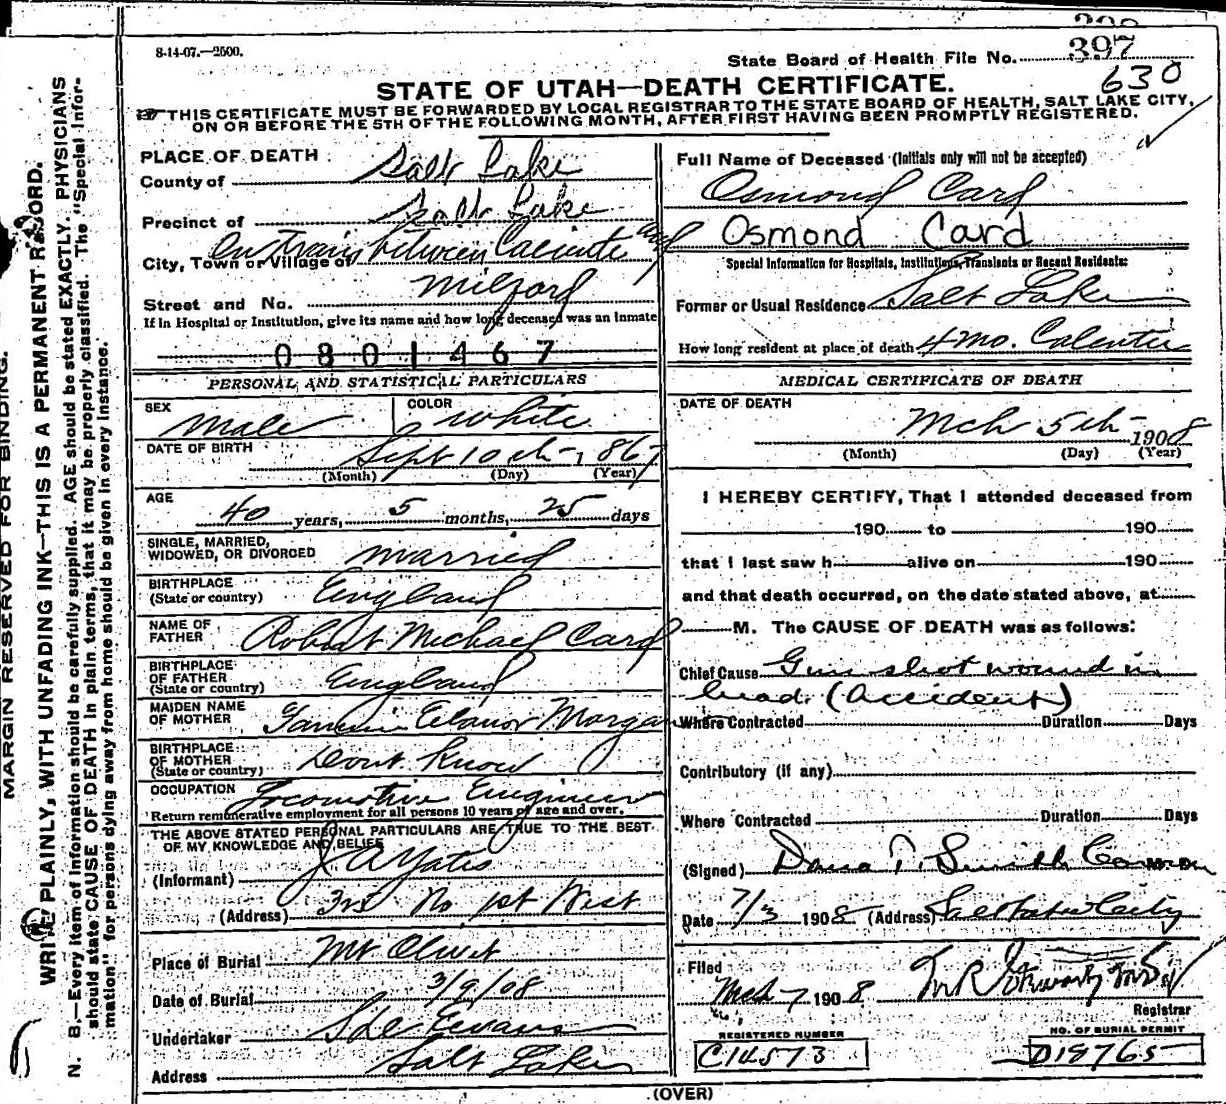 8-14-07.—2500.
State Board of Health File No. 397
630
STATE OF UTAH—DEATH CERTIFICATE.
THIS CERTIFICATE MUST BE FORWARDED BY LOCAL REGISTRAR TO THE STATE BOARD OF HEALTH, SALT LAKE CITY,
ON OR BEFORE THE 5TH OF THE FOLLOWING MONTH, AFTER FIRST HAVING BEEN PROMPTLY REGISTERED.
MARGIN RESERVED FOR BINDING.
WRITE PLAINLY, WITH UNFADING INK—THIS IS A PERMANENT RECORD.
N. B.—Every item of information should be carefully supplied. AGE should be stated EXACTLY. PHYSICIANS
should state CAUSE OF DEATH in plain terms, that it may be properly classified. The "Special Infor-
mation" for persons dying away from home should be given in every instance.
PLACE OF DEATH
County of Salt Lake
Precinct of Salt Lake
City, Town or Village of On train between Caliente and
Milford
Street and No.
If in Hospital or Institution, give its name and how long deceased was an inmate
0801467
PERSONAL AND STATISTICAL PARTICULARS
SEX Male COLOR White
DATE OF BIRTH Sept 10th 1867
(Month) (Day) (Year)
AGE
40 years, 5 months, 25 days
SINGLE, MARRIED,
WIDOWED, OR DIVORCED Married
BIRTHPLACE
(State or country) England
NAME OF
FATHER Robert Michael Card
BIRTHPLACE
OF FATHER
(State or country) England
MAIDEN NAME
OF MOTHER Elanor Morgan
BIRTHPLACE
OF MOTHER
(State or country) Dont Know
OCCUPATION Locomotive Engineer
Return remunerative employment for all persons 10 years of age and over.
THE ABOVE STATED PERSONAL PARTICULARS ARE TRUE TO THE BEST
OF MY KNOWLEDGE AND BELIEF
(Informant) J A Yates
(Address) No 1st West
Place of Burial Mt Olivet
Date of Burial 3/9/08
Undertaker Evans
Address Salt Lake
Full Name of Deceased (Initials only will not be accepted)
Osmond Card
Osmond Card
Special Information for Hospitals, Institutions, Transients or Recent Residents:
Former or Usual Residence Salt Lake
How long resident at place of death 4 mo. Calentie
MEDICAL CERTIFICATE OF DEATH
DATE OF DEATH
Mch 5th 1908
(Month) (Day) (Year)
I HEREBY CERTIFY, That I attended deceased from
190 to 190
that I last saw h alive on 190
and that death occurred, on the date stated above, at
M. The CAUSE OF DEATH was as follows:
Chief Cause Gun shot wound in
head. (Accident)
Where Contracted Duration Days
Contributory (if any)
Where Contracted Duration Days
(Signed) Dana T. Smith M. D.
Date 7/3 1908 (Address) Salt Lake City
Filed
Mch 7 1908
Registrar
REGISTERED NUMBER
C14573
NO. OF BURIAL PERMIT
D18765
(OVER)